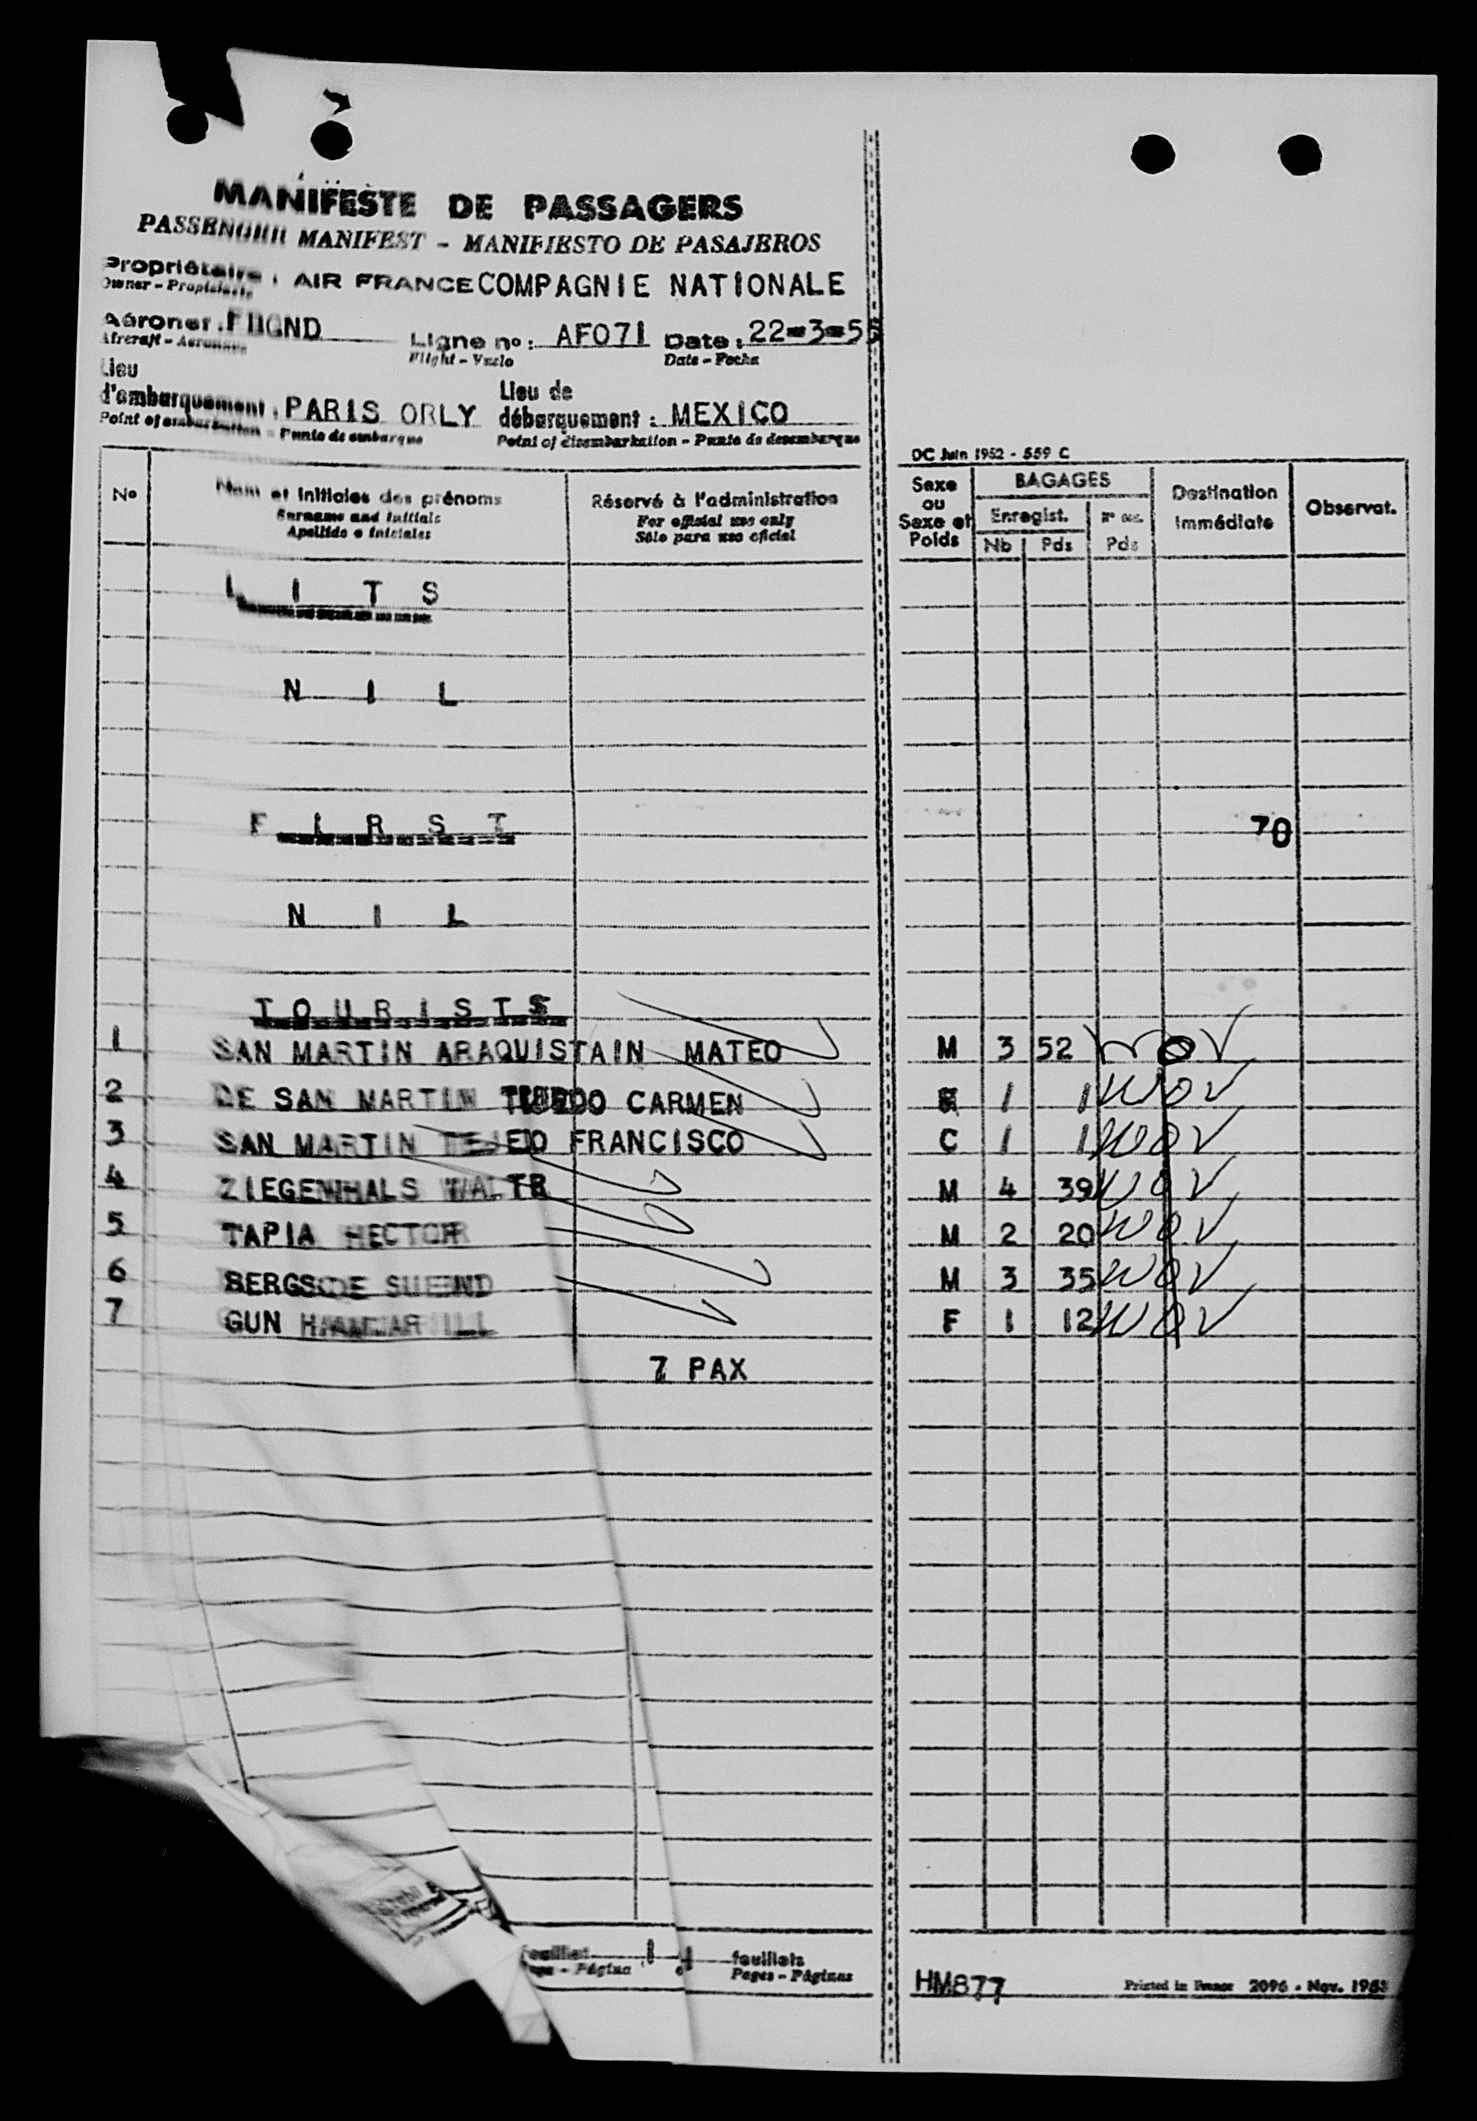 MANIFESTE DE PASSAGERS
PASSENGER MANIFEST - MANIFIESTO DE PASAJEROS
Propriétaire : AIR FRANCE COMPAGNIE NATIONALE
Owner - Propietario
Aéronef : Ligne no : AF071 Date : 22-3-55
Aircraft - Aeronave Flight - Vuelo Date - Fecha
Lieu d'embarquement : PARIS ORLY Lieu de débarquement : MEXICO
Point of embarkation - Punto de embarque Point of disembarkation - Punto de desembarque
DC Juin 1952 - 559 C
No Nom et initiales des prénoms Réservé à l'administration Sexe ou Sexe et Poids BAGAGES Destination immédiate Observat.
Surname and initials For official use only Enregist.
Apellido e iniciales Sólo para uso oficial Nb Pds Pds
L I T S
N I L
F I R S T 70
N I L
T O U R I S T S
1 SAN MARTIN ARAQUISTAIN MATEO M 3 52
2 DE SAN MARTIN CARMEN 1 1
3 SAN MARTIN TEJEDO FRANCISCO C 1 1
4 ZIEGENHALS M 4 39
5 TAPIA HECTOR M 2 20
6 M 3 35
7 GUN F 1 12
7 PAX
feuillet 1 feuillets
Page - Página Pages - Páginas
HM877 Printed in France 2096 - Nov. 1953